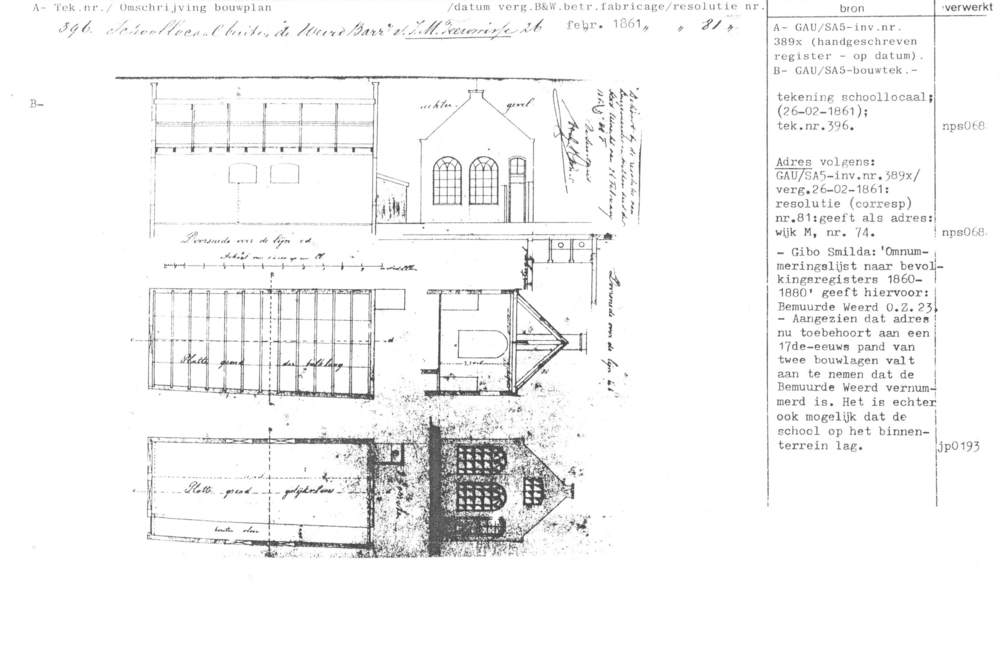 A- Tek.nr./ Omschrijving bouwplan /datum verg.B&W.betr.fabricage/resolutie nr.
396. Schoollocaal buiten de Weerd Barr 26 febr. 1861 „ „ 81 „
bron
verwerkt
A- GAU/SA5-inv.nr.
389x (handgeschreven
register - op datum).
B- GAU/SA5-bouwtek.-
B-
tekening schoollocaal;
(26-02-1861);
tek.nr.396.
nps068
Adres volgens:
GAU/SA5-inv.nr.389x/
verg.26-02-1861:
resolutie (corresp)
nr.81:geeft als adres:
wijk M, nr. 74.
nps068
- Gibo Smilda:'Omnum-
meringslijst naar bevol-
kingsregisters 1860-
1880' geeft hiervoor:
Bemuurde Weerd O.Z.23.
- Aangezien dat adres
nu toebehoort aan een
17de-eeuws pand van
twee bouwlagen valt
aan te nemen dat de
Bemuurde Weerd vernum-
merd is. Het is echter
ook mogelijk dat de
school op het binnen-
terrein lag.
jp0193
achter gevel
Doorsnede over de lijn c d.
Doorsnede over de lijn a b
Platte grond der balklaag
Platte grond gelijkvloers